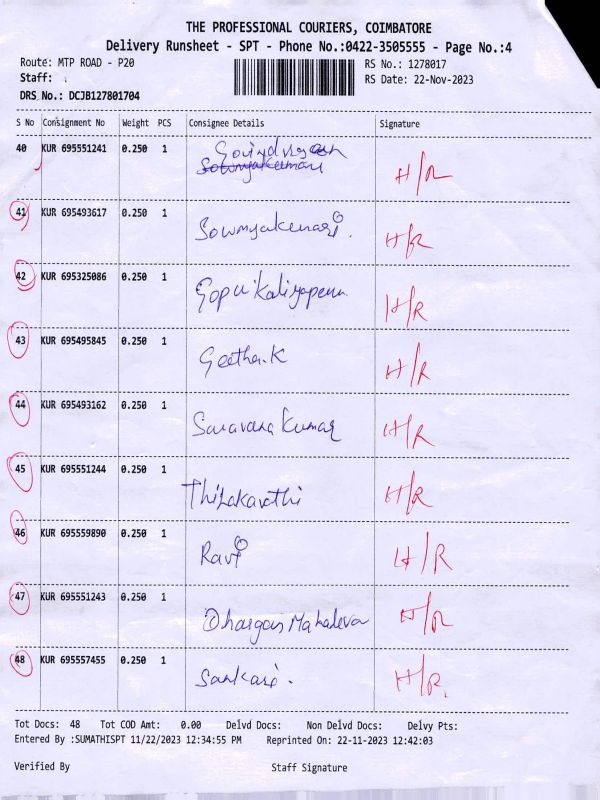 THE PROFESSIONAL COURIERS, COIMBATORE
Delivery Runsheet - SPT - Phone No.:0422-3505555 - Page No.:4
Route: MTP ROAD - P20 RS No.: 1278017
Staff: RS Date: 22-Nov-2023
DRS No.: DCJB127801704
S No Consignment No Weight PCS Consignee Details Signature
40 KUR 695551241 0.250 1 H/R
Sowmyakumari
41 KUR 695493617 0.250 1 Sowmyakumari. H/R
42 KUR 695325086 0.250 1 Gopi H/R
43 KUR 695495845 0.250 1 Geetha.K H/R
44 KUR 695493162 0.250 1 Saravana Kumar H/R
45 KUR 695551244 0.250 1 Thilakavathi H/R
46 KUR 695559890 0.250 1 Ravi H/R
47 KUR 695551243 0.250 1 Mahadeva H/R
48 KUR 695557455 0.250 1 Sankari. H/R.
Tot Docs: 48 Tot COD Amt: 0.00 Delvd Docs: Non Delvd Docs: Delvy Pts:
Entered By :SUMATHISPT 11/22/2023 12:34:55 PM Reprinted On: 22-11-2023 12:42:03
Verified By Staff Signature